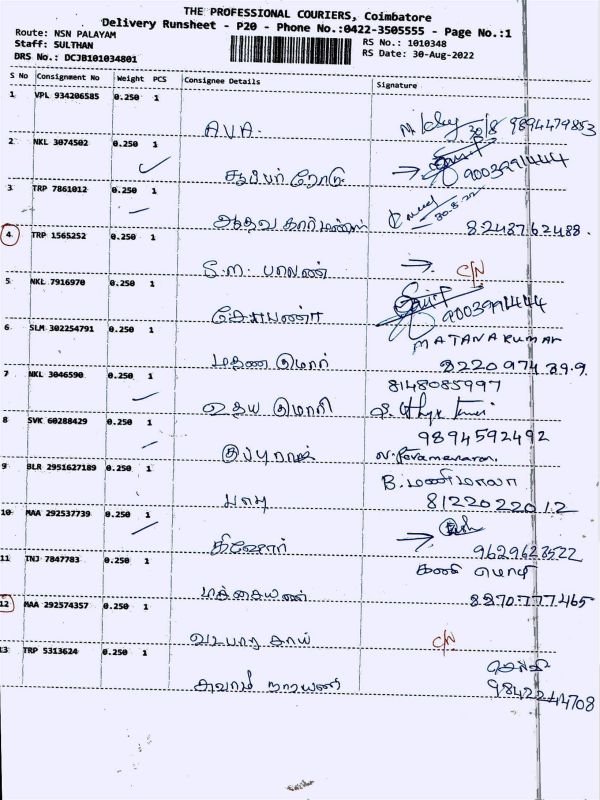 THE PROFESSIONAL COURIERS, Coimbatore
Delivery Runsheet - P20 - Phone No.:0422-3505555 - Page No.:1
Route: NSN PALAYAM
Staff: SULTHAN
DRS No.: DCJB101034801
RS No.: 1010348
RS Date: 30-Aug-2022
S No Consignment No Weight PCS Consignee Details Signature
1 VPL 934206585 0.250 1
AVA. 30/8 9894479853
2 NKL 3074502 0.250 1
சூப்பர் ரோடு 9003991444
3 TRP 7861012 0.250 1
30.8.22 8248762488.
4 TRP 1565252 0.250 1
S.M. பாலன் C/N
5 NKL 7916970 0.250 1
9003991444
6 SLM 302254791 0.250 1
MATANAKUMAR
மதன குமார் 8220974399
7 NKL 3046590 0.250 1
8148085997
உதய குமாரி
8 SVK 60288429 0.250 1
9894592492
9 BLR 2951627189 0.250 1
B.மணிமாலா
பாபு 8122022012
10 MAA 292537739 0.250 1
கிஷோர் 9629623522
11 TNJ 7847783 0.250 1
கனி மொழி
8270777465
12 MAA 292574357 0.250 1
C/N
13 TRP 5313624 0.250 1
செல்வி
9842244708